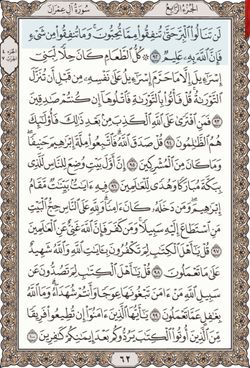 الجزء الرابع سورة آل عمران
لَن تَنَالُوا۟ ٱلْبِرَّ حَتَّىٰ تُنفِقُوا۟ مِمَّا تُحِبُّونَ ۚ وَمَا تُنفِقُوا۟ مِن شَىْءٍ
فَإِنَّ ٱللَّهَ بِهِۦ عَلِيمٌ ٩٢ ۞ كُلُّ ٱلطَّعَامِ كَانَ حِلًّا لِّبَنِىٓ
إِسْرَٰٓءِيلَ إِلَّا مَا حَرَّمَ إِسْرَٰٓءِيلُ عَلَىٰ نَفْسِهِۦ مِن قَبْلِ أَن تُنَزَّلَ
ٱلتَّوْرَىٰةُ ۗ قُلْ فَأْتُوا۟ بِٱلتَّوْرَىٰةِ فَٱتْلُوهَآ إِن كُنتُمْ صَٰدِقِينَ
٩٣ فَمَنِ ٱفْتَرَىٰ عَلَى ٱللَّهِ ٱلْكَذِبَ مِنۢ بَعْدِ ذَٰلِكَ فَأُو۟لَٰٓئِكَ
هُمُ ٱلظَّٰلِمُونَ ٩٤ قُلْ صَدَقَ ٱللَّهُ ۗ فَٱتَّبِعُوا۟ مِلَّةَ إِبْرَٰهِيمَ حَنِيفًا
وَمَا كَانَ مِنَ ٱلْمُشْرِكِينَ ٩٥ إِنَّ أَوَّلَ بَيْتٍ وُضِعَ لِلنَّاسِ لَلَّذِى
بِبَكَّةَ مُبَارَكًا وَهُدًى لِّلْعَٰلَمِينَ ٩٦ فِيهِ ءَايَٰتٌۢ بَيِّنَٰتٌ مَّقَامُ
إِبْرَٰهِيمَ ۖ وَمَن دَخَلَهُۥ كَانَ ءَامِنًا ۗ وَلِلَّهِ عَلَى ٱلنَّاسِ حِجُّ ٱلْبَيْتِ
مَنِ ٱسْتَطَاعَ إِلَيْهِ سَبِيلًا ۚ وَمَن كَفَرَ فَإِنَّ ٱللَّهَ غَنِىٌّ عَنِ ٱلْعَٰلَمِينَ
٩٧ قُلْ يَٰٓأَهْلَ ٱلْكِتَٰبِ لِمَ تَكْفُرُونَ بِـَٔايَٰتِ ٱللَّهِ وَٱللَّهُ شَهِيدٌ
عَلَىٰ مَا تَعْمَلُونَ ٩٨ قُلْ يَٰٓأَهْلَ ٱلْكِتَٰبِ لِمَ تَصُدُّونَ عَن
سَبِيلِ ٱللَّهِ مَنْ ءَامَنَ تَبْغُونَهَا عِوَجًا وَأَنتُمْ شُهَدَآءُ ۗ وَمَا ٱللَّهُ
بِغَٰفِلٍ عَمَّا تَعْمَلُونَ ٩٩ يَٰٓأَيُّهَا ٱلَّذِينَ ءَامَنُوٓا۟ إِن تُطِيعُوا۟ فَرِيقًا
مِّنَ ٱلَّذِينَ أُوتُوا۟ ٱلْكِتَٰبَ يَرُدُّوكُم بَعْدَ إِيمَٰنِكُمْ كَٰفِرِينَ ١٠٠
٦٢